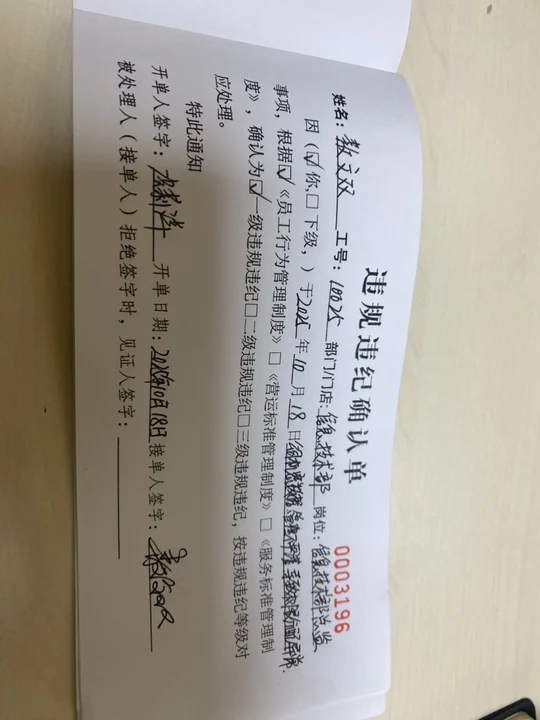 违规违纪确认单
0003196
姓名：敖文双 工号：10025 部门/门店：信息技术部 岗位：信息技术部总监
因（☑你、□下级，）于2025年10月18日
事项，根据☑《员工行为管理制度》□《营运标准管理制度》□《服务标准管理制
度》，确认为☑一级违规违纪□二级违规违纪□三级违规违纪，按违规违纪等级对
应处理。
特此通知
开单人签字： 开单日期：2025年10月18日 接单人签字：
被处理人（接单人）拒绝签字时，见证人签字：